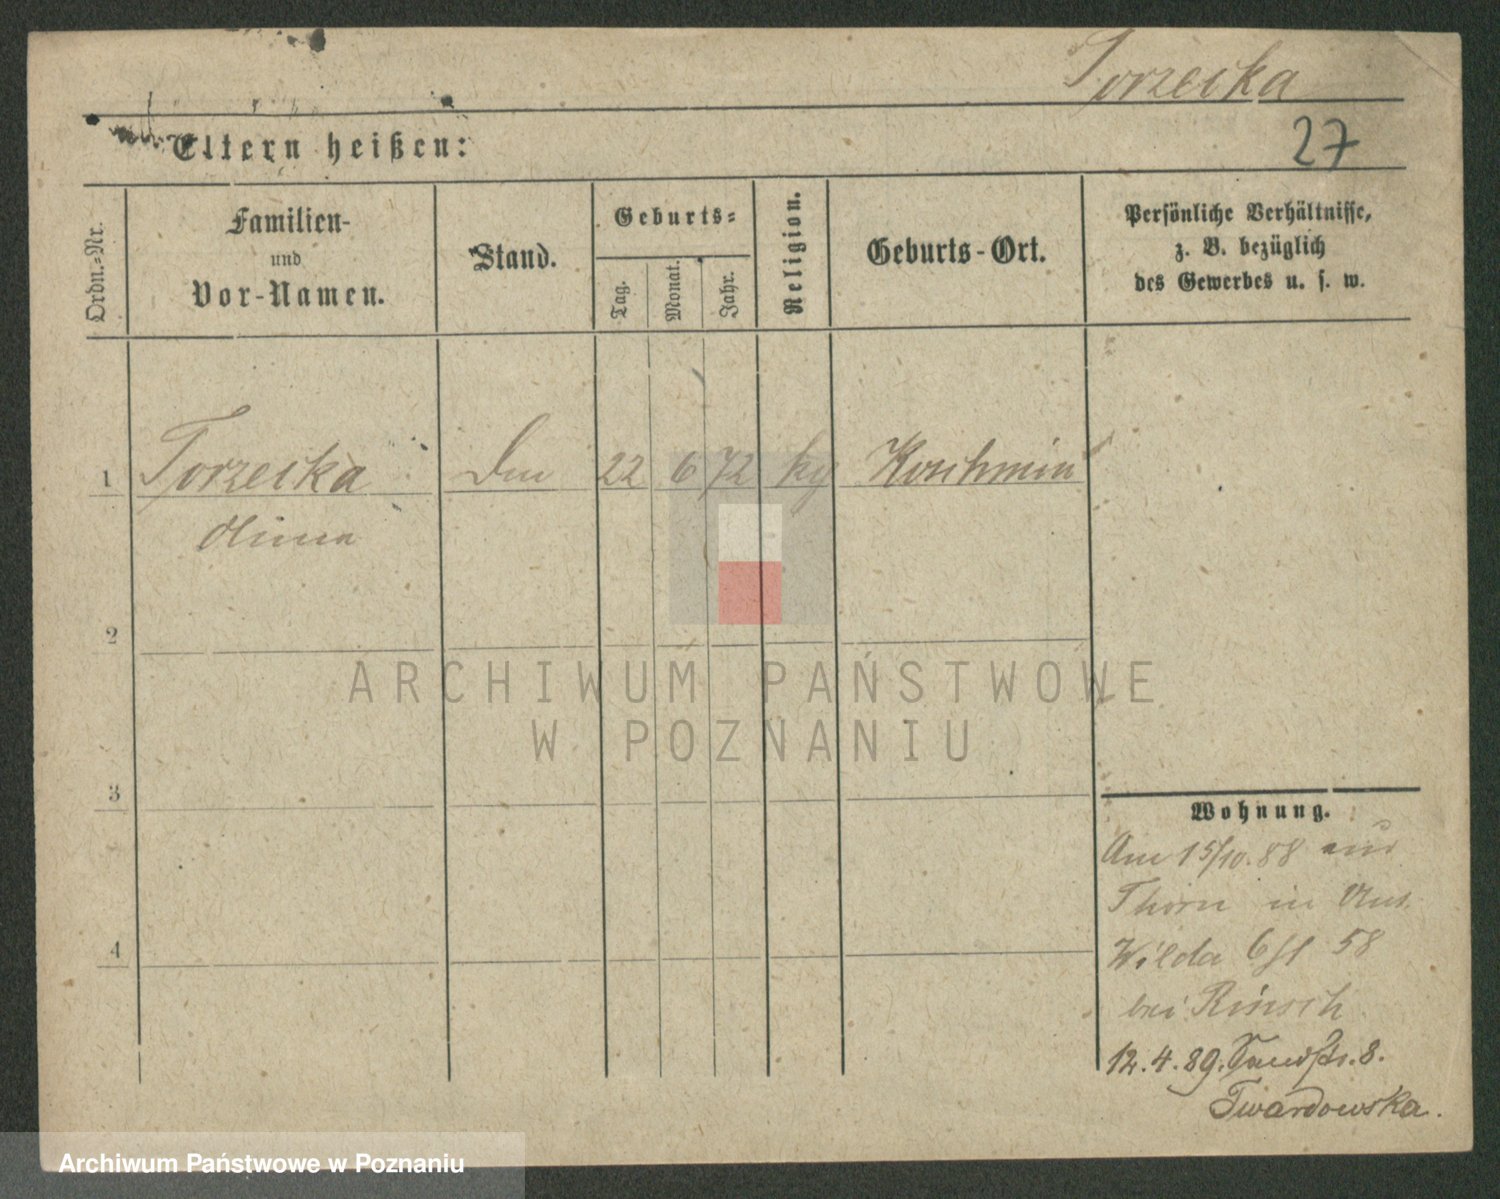 Torzecka
27
Eltern heißen:
Ordn.-Nr.
Familien-
und
Vor-Namen.
Stand.
Geburts-
Tag.
Monat.
Jahr.
Religion.
Geburts-Ort.
Persönliche Verhältnisse,
z. B. bezüglich
des Gewerbes u. s. w.
1 Torzecka 22 6 72 Koschmin
2
3
4
Wohnung.
Am 15/10. 88 aus
Thorn in
Wilda 58
bei Rinsch
12.4.89. Sandstr. 8.
Twardowska.
ARCHIWUM PAŃSTWOWE
W POZNANIU
Archiwum Państwowe w Poznaniu